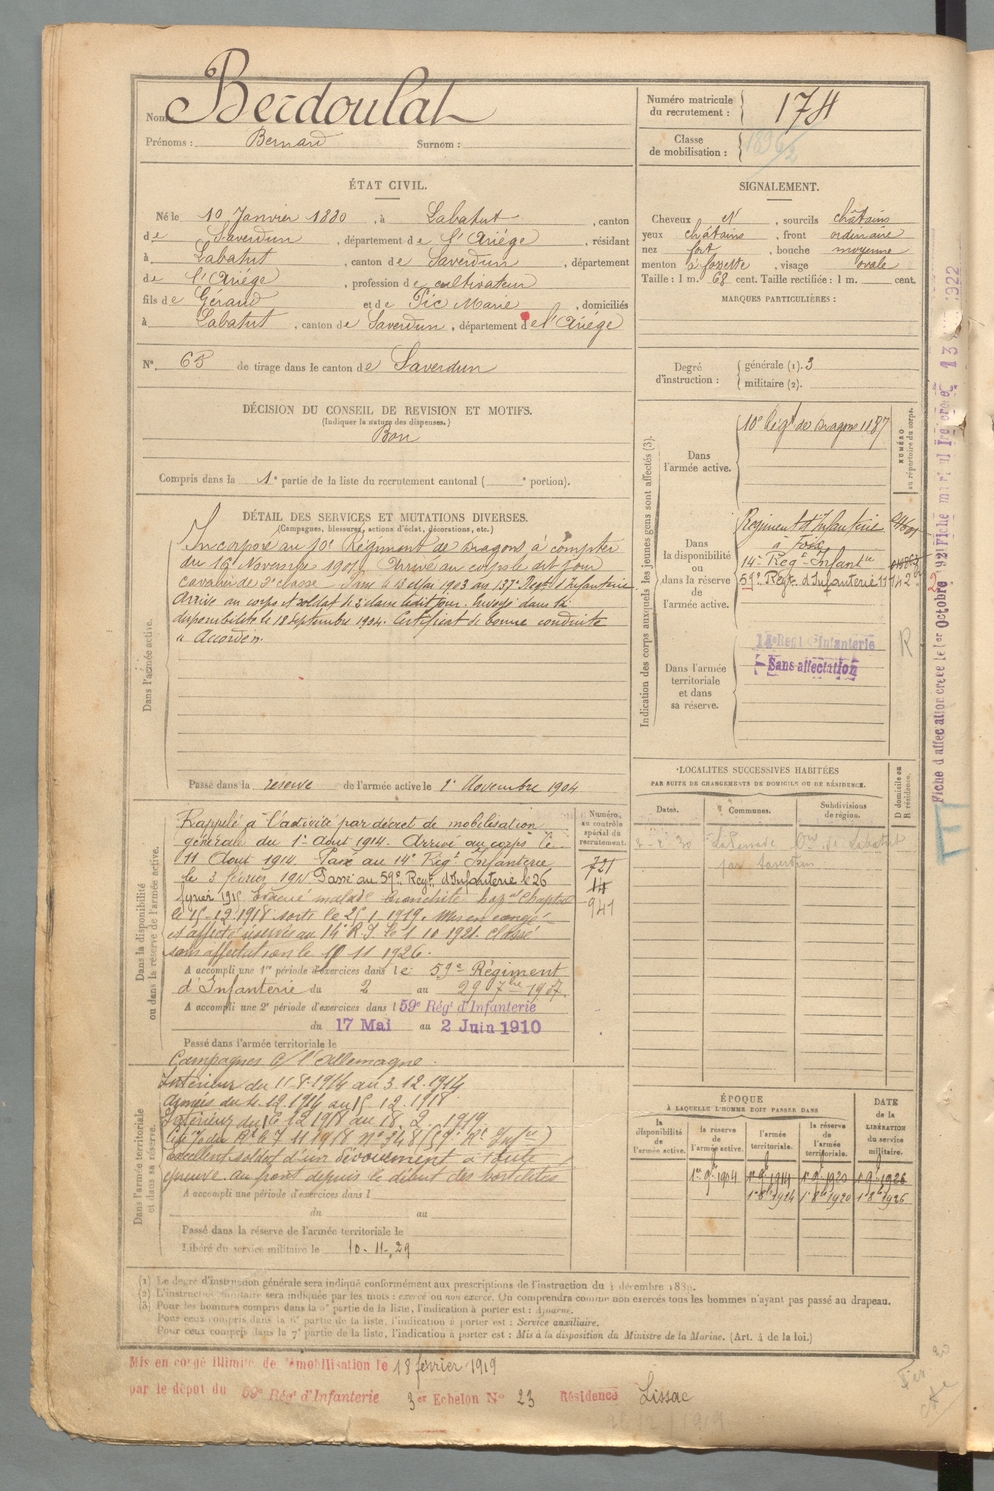 Nom Berdoulat
Prénoms : Bernard Surnom :
Numéro matricule du recrutement : 174
Classe de mobilisation :
ÉTAT CIVIL.
Né le 10 Janvier 1880, à Labatut, canton
de Saverdun, département de l'Ariége, résidant
à Labatut, canton de Saverdun, département
de l'Ariége, profession de cultivateur
fils de Géraud et de Pic Marie, domiciliés
à Labatut, canton de Saverdun, département de l'Ariége
N° 68 de tirage dans le canton de Saverdun
SIGNALEMENT.
Cheveux N, sourcils châtains
yeux châtains, front ordinaire
nez fort, bouche moyenne
menton à fossette, visage ovale
Taille : 1 m. 68 cent. Taille rectifiée : 1 m. cent.
MARQUES PARTICULIÈRES :
Degré d'instruction : générale (1). 3
militaire (2).
DÉCISION DU CONSEIL DE REVISION ET MOTIFS.
(Indiquer la nature des dispenses.)
Bon
Compris dans la 1e partie de la liste du recrutement cantonal ( e portion).
DÉTAIL DES SERVICES ET MUTATIONS DIVERSES.
(Campagnes, blessures, actions d'éclat, décorations, etc.)
Dans l'armée active.
Incorporé au 10e Régiment de Dragons à compter
du 16 Novembre 1901. Arrivé au corps le dit jour
cavalier de 2e classe. Passé le 13 Mai 1903 au Regt d'Infanterie
Arrivé au corps et soldat de 2e classe ledit jour. Envoyé dans la
disponibilité le 18 Septembre 1904. Certificat de bonne conduite
"Accordé".
Passé dans la reserve de l'armée active le 1er Novembre 1904
Indication des corps auxquels les jeunes gens sont affectés (3).
NUMÉRO au répertoire du corps.
Dans l'armée active.
10e Régt de Dragons 1187
Dans la disponibilité ou dans la réserve de l'armée active.
Régiment d'Infanterie
à Foix
14e Regt Infantie
59e Regt d'Infanterie
Dans l'armée territoriale et dans sa réserve.
14e Regt d'Infanterie
Sans affectation
R
Fiche d'affectation créée le 1er Octobre 1921 Fiche matricule créée 1922
LOCALITÉS SUCCESSIVES HABITÉES
PAR SUITE DE CHANGEMENTS DE DOMICILE OU DE RÉSIDENCE.
Dates. Communes. Subdivisions de région. D domicile ou R résidence.
par Saverdun
Dans la disponibilité ou dans la réserve de l'armée active.
Numéro au contrôle spécial du recrutement.
721
14
941
Rappelé à l'activité par décret de mobilisation
générale du 1er Aout 1914. Arrivé au corps le
11 Aout 1914. Passé au 14e Régt Infanterie
le 3 février 191 Passé au 59e Regt d'Infanterie le 26
février 1915 Evacué malade bronchite hopal Chaptal
le 15.12.1918 sorti le 25.1.1919. Mis en congé
et affecté réserve au 14e R.I. le 1.10.1921. Classé
sans affectation le 11 1926.
A accompli une 1re période d'exercices dans le 59e Régiment
d'Infanterie du 2 au 29 7bre 1907.
A accompli une 2e période d'exercices dans l 59e Rég' d'Infanterie
du 17 Mai au 2 Juin 1910
Passé dans l'armée territoriale le
Dans l'armée territoriale et dans sa réserve.
Campagnes c/ l'Allemagne.
Intérieur du 11.8.1914 au 3.12.1914
Armées du 4.12.1914 au 15.12.1918
Intérieur du 16 12 1918 au 18.2.1919.
Cité 7 11 1918 N° 148 (59e Rt Infie)
Excellent soldat d'un dévouement à toute
épreuve. au front depuis le début des hostilités
A accompli une période d'exercices dans l
du au
Passé dans la réserve de l'armée territoriale le
Libéré du service militaire le 10-11-29
ÉPOQUE
A LAQUELLE L'HOMME DOIT PASSER DANS
DATE de la LIBÉRATION du service militaire.
la disponibilité de l'armée active. la réserve de l'armée active. l'armée territoriale. la réserve de l'armée territoriale.
1er 9b 1904 1er 9b 1914 1er 9b 1920 1er 9b 1926
1er 8b 1924 1er 8b 1920 1er 8b 1926
(1) Le degré d'instruction générale sera indiqué conformément aux prescriptions de l'instruction du 4 décembre 1889.
(2) L'instruction militaire sera indiquée par les mots : exercé ou non exercé. On comprendra comme non exercés tous les hommes n'ayant pas passé au drapeau.
(3) Pour les hommes compris dans la 5e partie de la liste, l'indication à porter est : Ajourné.
Pour ceux compris dans la 6e partie de la liste, l'indication à porter est : Service auxiliaire.
Pour ceux compris dans la 7e partie de la liste, l'indication à porter est : Mis à la disposition du Ministre de la Marine. (Art. 4 de la loi.)
Mis en congé illimité de démobilisation le 18 février 1919
par le dépôt du 59e Rég' d'Infanterie 3er Echelon N° 23 Résidence Lissac